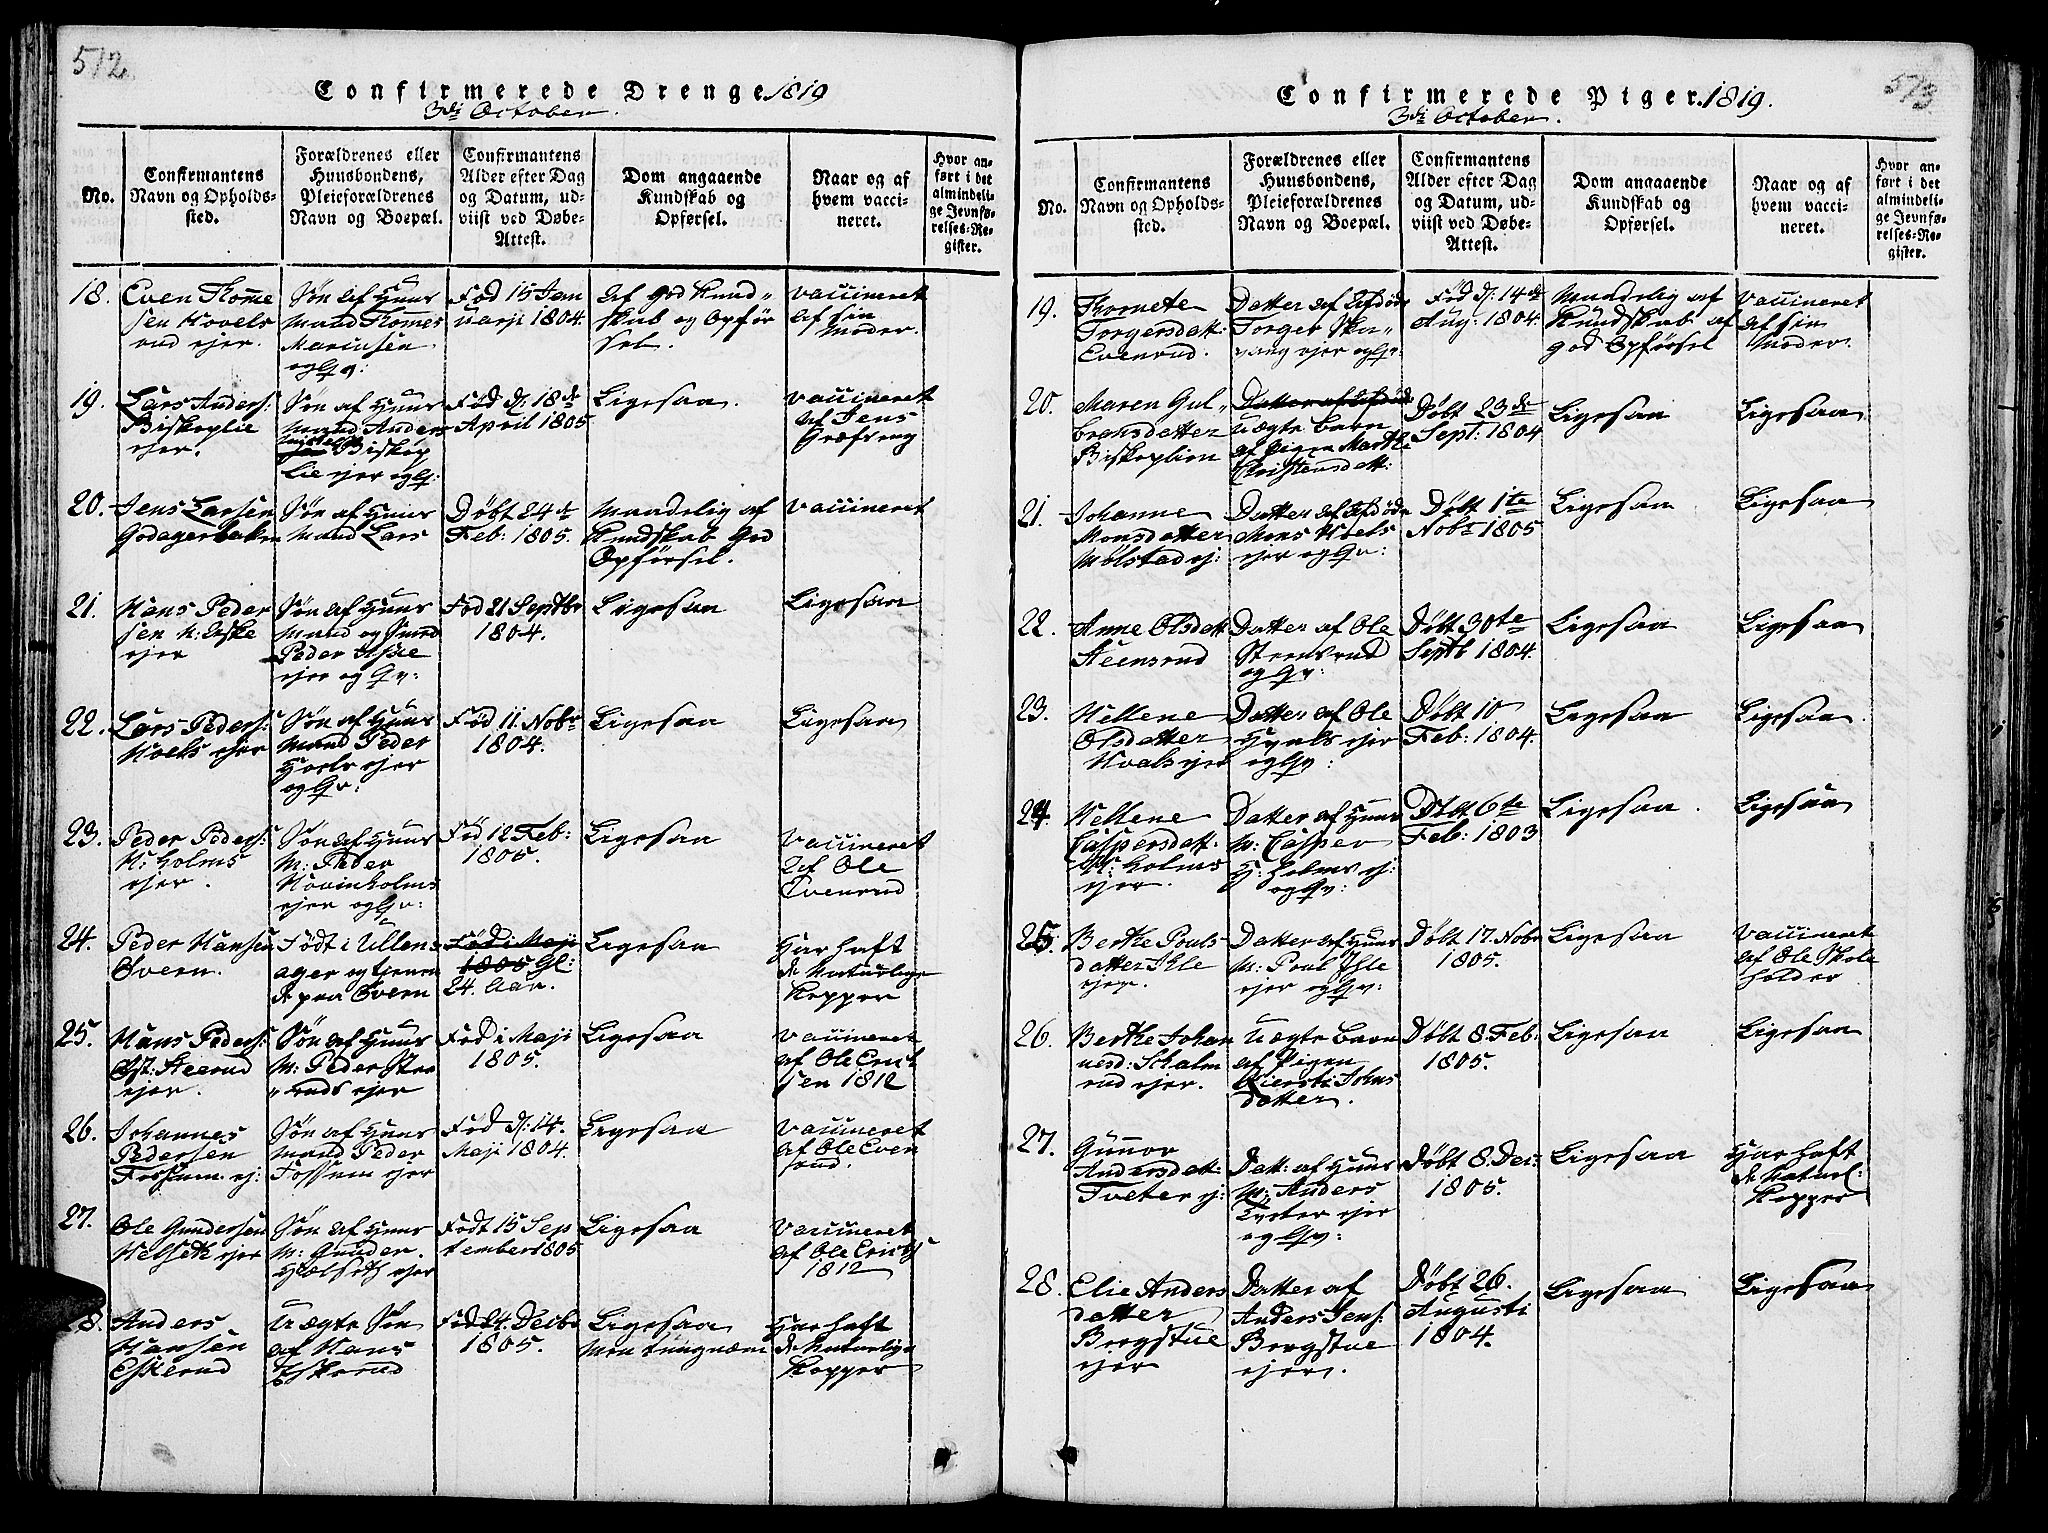 512.
Confirmerede Drenge 1819
3di October.
No.
Confirmantens
Navn og Opholds-
sted.
Forældrenes eller
Huusbondens,
Pleieforældrenes
Navn og Boepæl.
Confirmantens
Alder efter Dag
og Datum, ud-
viist ved Døbe-
Attest.
Dom angaaende
Kundskab og
Opførsel.
Naar og af
hvem vacci-
neret.
Hvor an-
ført i det
almindeli-
ge Jevnfø-
relses-Re-
gister.
18.
Even Tom̅e
sen Hovels
rud ejer.
Søn af Huus
mand Tom̅es
Mariusen
og Gv:
Fød 15 Jan
uarji 1804.
af god Kund-
skab og Opfør
sel.
vaccineret
af sin
Moder.
19.
Lars Anders:
Biskoplie
ejer.
Søn af Huus
mand Anders
Biskop
Lie ejer og G:
Fød d: 18de
April 1805
Ligesaa.
vaccineret
af Jens
Græfseng
20.
Jens Larsen
Godagerbaken
Søn af Huus
mand Lars
Døbt 24de
Feb: 1805.
Maadelig af
Kundskab god
Opførsel.
vaccineret
21.
Hans Peder
sen
ejer
Søn af Huus
mand og Smed
Peder
ejer og Gv:
Fød 21 Septbr
1804.
Ligesaa
Ligesaa
22.
Lars Peders:
Hoels ejer
Søn af Huus
mand Peder
Hoels ejer
og Gv:
Fød 11. Nobr
1804.
Ligesaa
Ligesaa
23.
Peder Peders:
H: holms
ejer.
Søn af Huus
M: Peder
Hovinholms
ejer og Gv:
Fød 12 Feb:
1805.
Ligesaa
Vaccineret
af Ole
Evenrud
24.
Peder Hansen
Øvern.
Født i Ullens
ager og tjenen
de paa Øvern
Fød i Maji
1805 Gl:
24. Aar.
Ligesaa
Har haft
de Naturlige
Kopper
25.
Hans Peders:
Øst: Steerud
ejer.
Søn af Huus
M: Peder Stee
ruds ejer
Fød i Maji
1805.
Ligesaa
vaccineret
af Ole Erick
sen 1812
26.
Johannes
Pedersen
Fossum ej:
Søn af Huus
mand Peder
Fossum ejer
Fød d: 14.
Maji 1804.
Ligesaa
vaccineret
af Ole Even
rud.
27.
Ole Gundersen
Helseth ejer
Søn af Huus
M: Gunder
Hælseth ejer
Født 15 Sep
tember 1805
Ligesaa
vaccineret
af Ole Ericks
1812
28.
Anders
Hansen
Eskerud
Uægte Søn
af Hans
Eskerud
Fød 24. Decbr
1805.
Ligesaa
men tungnæm
Har haft
de Naturlige
Kopper
513
Confirmerede Piger. 1819.
3di October.
No.
Confirmantens
Navn og Opholds-
sted.
Forældrenes eller
Huusbondens,
Pleieforældrenes
Navn og Boepæl.
Confirmantens
Alder efter Dag
og Datum, ud-
viist ved Døbe-
Attest.
Dom angaaende
Kundskab og
Opførsel.
Naar og af
hvem vacci-
neret.
Hvor an-
ført i det
almindeli-
ge Jevnfø-
relses-Re-
gister.
19.
Thornete
Torgersdatt:
Evenrud.
Datter af Afdøde
Torger Ska-
vang ejer og Gv:
Fød d: 14de
Aug: 1804.
Maadelig af
Kundskab af
god Opførsel
Vaccineret
af sin
Moder.
20.
Maren Gul-
bransdatter
Biskoplien
Datter af Afdøde
uægte barn
af Pigen Marthe
Christensdatt:
Døbt 23de
Sept: 1804
Ligesaa
Ligesaa
21.
Johanne
Monsdatter
Mølstad ej:
Datter af Afdøde
Mons Hoels
ejer og Gv:
Døbt 1te
Nobr 1805
Ligesaa
Ligesaa
22.
Anne Olsdatt
Steensrud
Datter af Ole
Steensrud
og Gv:
Døbt 30te
Septb 1804.
Ligesaa
Ligesaa
23.
Hellene
Olsdatter
Hvals ejer
Datter af Ole
Hvals ejer
og Gv:
Døbt 10
Feb: 1804.
Ligesaa
Ligesaa.
24.
Hellene
Caspersdatt.
H: holms
ejer.
Datter af Huus
M: Casper
H: holms ej:
og Gv:
Døbt 6te
Feb: 1803
Ligesaa.
Ligesaa
25.
Berthe Pouls
datter Ihle
ejer.
Datter af Huus
M: Poul Ihle
ejer og Gv:
Døbt 17. Nobr
1805.
Ligesaa
Vaccineret
af Ole Skole
holder
26.
Berthe Johan
nesd: Skalm
rud ejer.
Uægte barn
af Pigen
Kiersti Johns
datter.
Døbt 8. Feb:
1805.
Ligesaa
Ligesaa
27.
Gunnor
Andersdatt:
Tveter ej:
Datt: af Huus
M: Anders
Tveter ejer
og Gv:
Døbt 8. Dec:
1805.
Ligesaa
Har haft
de Naturl:
Kopper
28.
Elie Anders
datter
Bergstue
ejer
Datter af
Anders Jens:
Bergstue
ejer.
Døbt 26.
Augusti
1804.
Ligesaa
Ligesaa